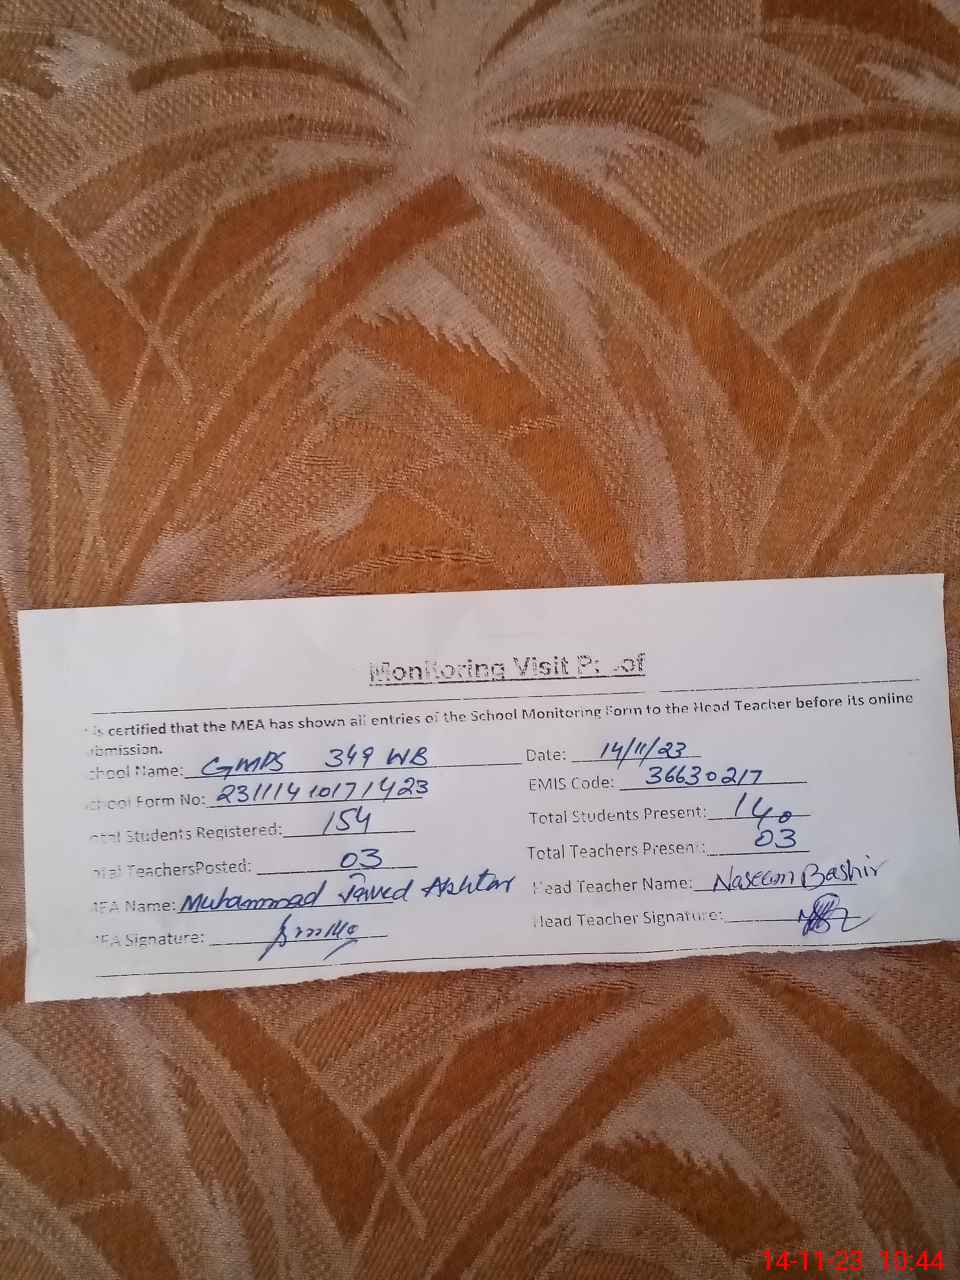 Monitoring Visit P of
is certified that the MEA has shown all entries of the School Monitoring Form to the Head Teacher before its online
bmission.
chool Name: GMPS 349 WB Date: 14/11/23
chool Form No: 23111410171423 EMIS Code: 36630217
otal Students Registered: 154 Total Students Present: 140
otal TeachersPosted: 03 Total Teachers Present: 03
MEA Name: Muhammad Javed Akhtar Head Teacher Name: Naseem Bashir
MEA Signature: Head Teacher Signature:
14-11-23 10:44